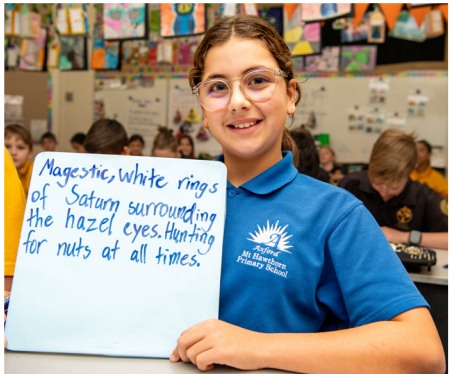 Magestic, white rings
of Saturn surrounding
the hazel eyes. Hunting
for nuts at all times.
Mt Hawthorn
Primary School